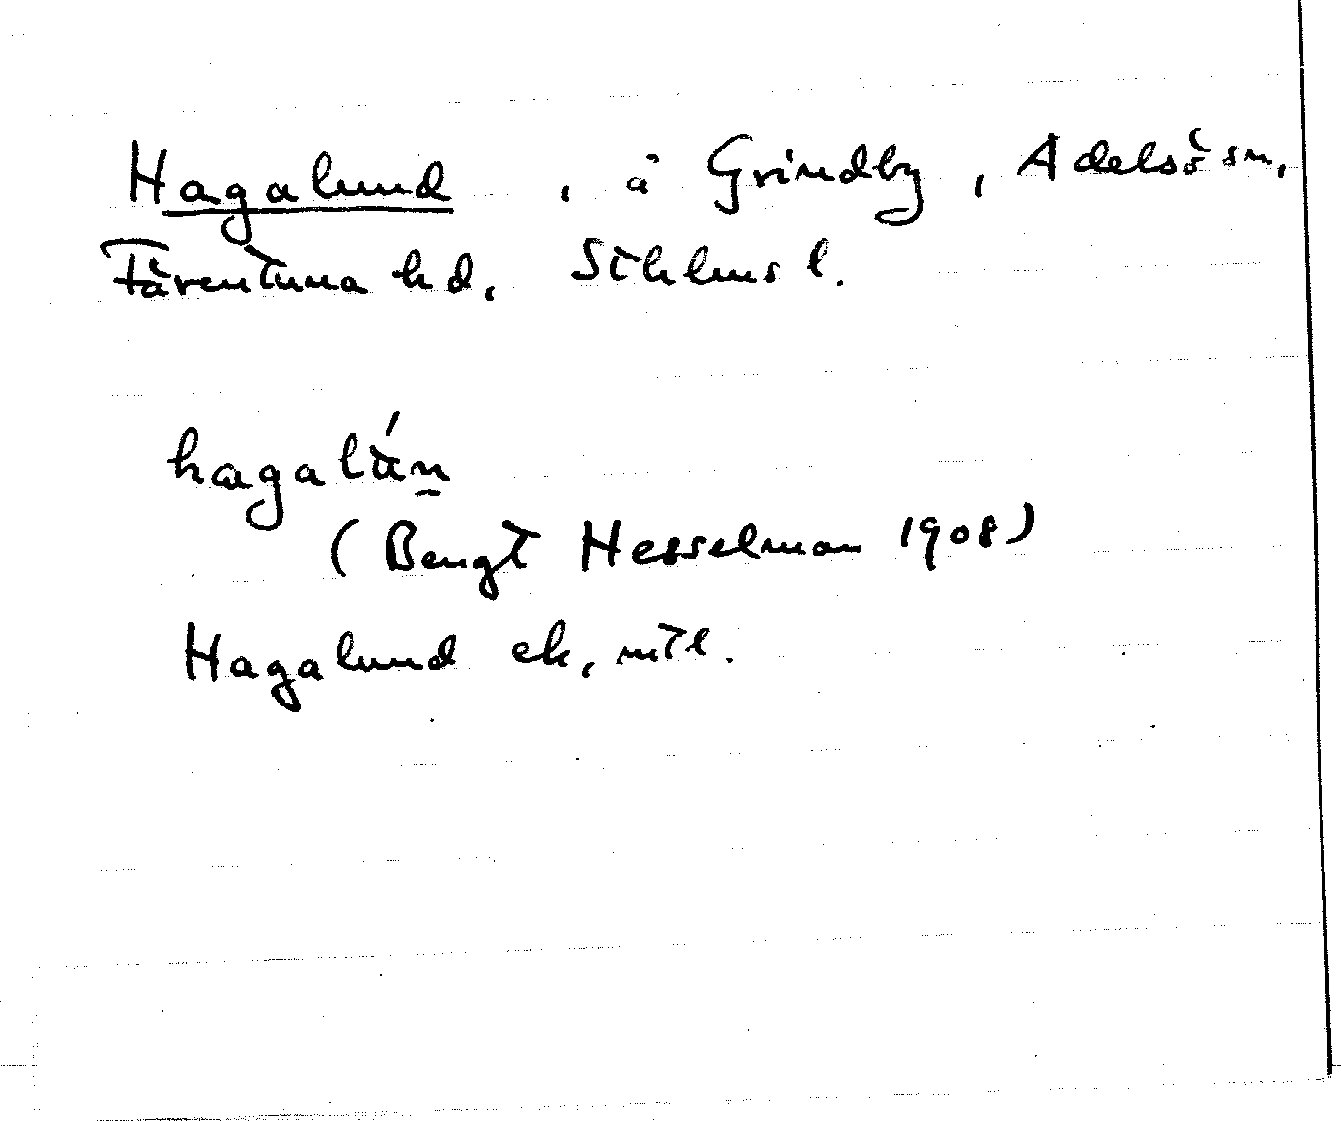 Hagalund , å Grindby, Adelsö sn,
Färentuna hd, Sthlms l.
hagalún̠
(Bengt Hesselman 1908)
Hagalund ek, mtl.